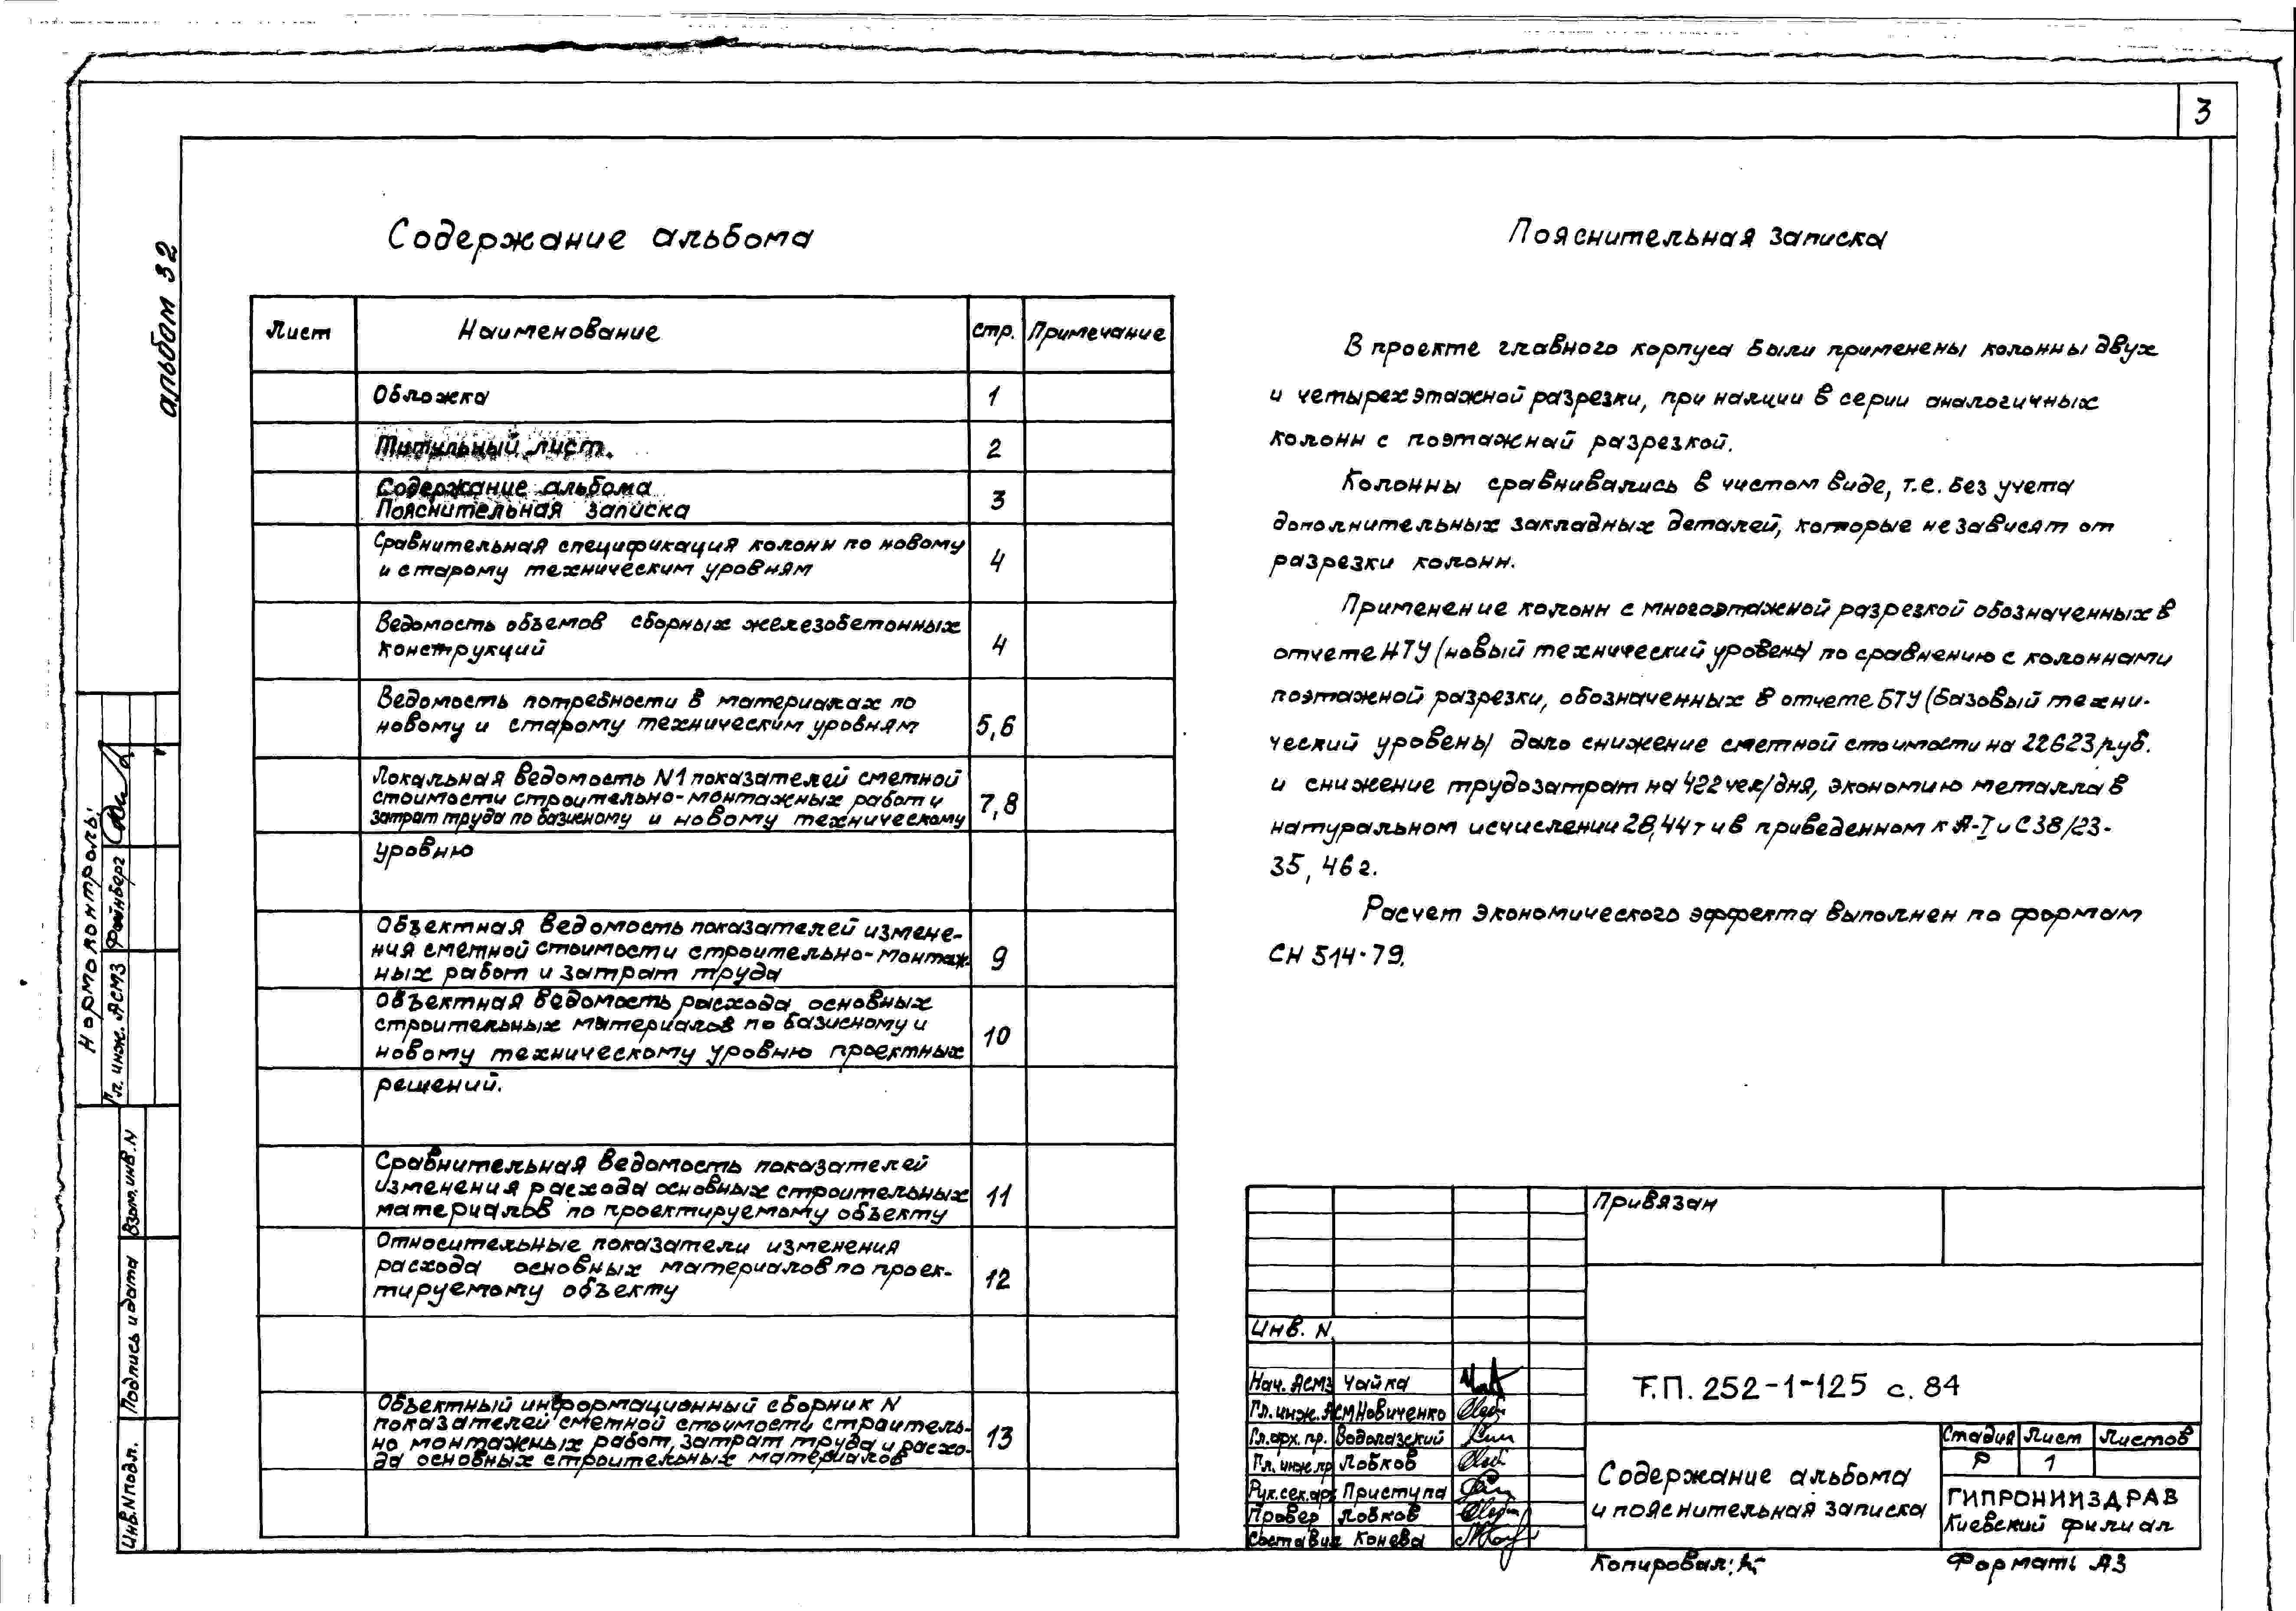 3
альбом 32
Содержание альбома
Лист Наименование стр. Примечание
Обложка 1
Титульный лист. 2
Содержание альбома
Пояснительная записка 3
Сравнительная спецификация колонн по новому
и старому техническим уровням 4
Ведомость объемов сборных железобетонных
конструкций 4
Ведомость потребности в материалах по
новому и старому техническим уровням 5,6
Локальная ведомость N1 показателей сметной
стоимости строительно-монтажных работ и
затрат труда по базисному и новому техническому 7,8
уровню
Объектная ведомость показателей измене-
ния сметной стоимости строительно-монтаж-
ных работ и затрат труда 9
Объектная ведомость расхода основных
строительных материалов по базисному и
новому техническому уровню проектных 10
решений.
Сравнительная ведомость показателей
изменения расхода основных строительных
материалов по проектируемому объекту 11
Относительные показатели изменения
расхода основных материалов по проек-
тируемому объекту 12
Объектный информационный сборник N
показателей сметной стоимости строитель-
но монтажных работ, затрат труда и расхо-
да основных строительных материалов 13
Пояснительная записка
В проекте главного корпуса были применены колонны двух
и четырехэтажной разрезки, при налиции в серии аналогичных
колонн с поэтажнай разрезкой.
Колонны сравнивались в чистом виде, т.е. без учета
дополнительных закладных деталей, которые не зависят от
разрезки колонн.
Применение колонн с многоэтажной разрезкой обозначенных в
отчете НТУ (новый технический уровень) по сравнению с колоннами
поэтажной разрезки, обозначенных в отчете БТУ (базовый техни-
ческий уровень) дало снижение сметной стоимости на 22623 руб.
и снижение трудозатрат на 422 чел/дня, экономию металла в
натуральном исчислении 28,44 т и в приведенном к А-I и С38/23-
35,46 г.
Расчет экономического эффекта выполнен по формам
СН 514-79.
Нормоконтроль:
Гл. инж. АСМ3 Файнберг
Взам. инв. N
Подпись и дата
Инв. N подл.
Привязан
Инв. N
Нач. АСМ3 Чайка
Гл. инж. АСМ Новиченко
Гл. арх. пр. Водолазский
Гл. инж. пр Лобков
Рук. сек. арх Приступа
Провер Лобков
Составил Конева
Т.П. 252-1-125 с. 84
Содержание альбома
и пояснительная записка
Стадия Лист Листов
Р 1
ГИПРОНИИЗДРАВ
Киевский филиал
Копировал:
Формат: А3